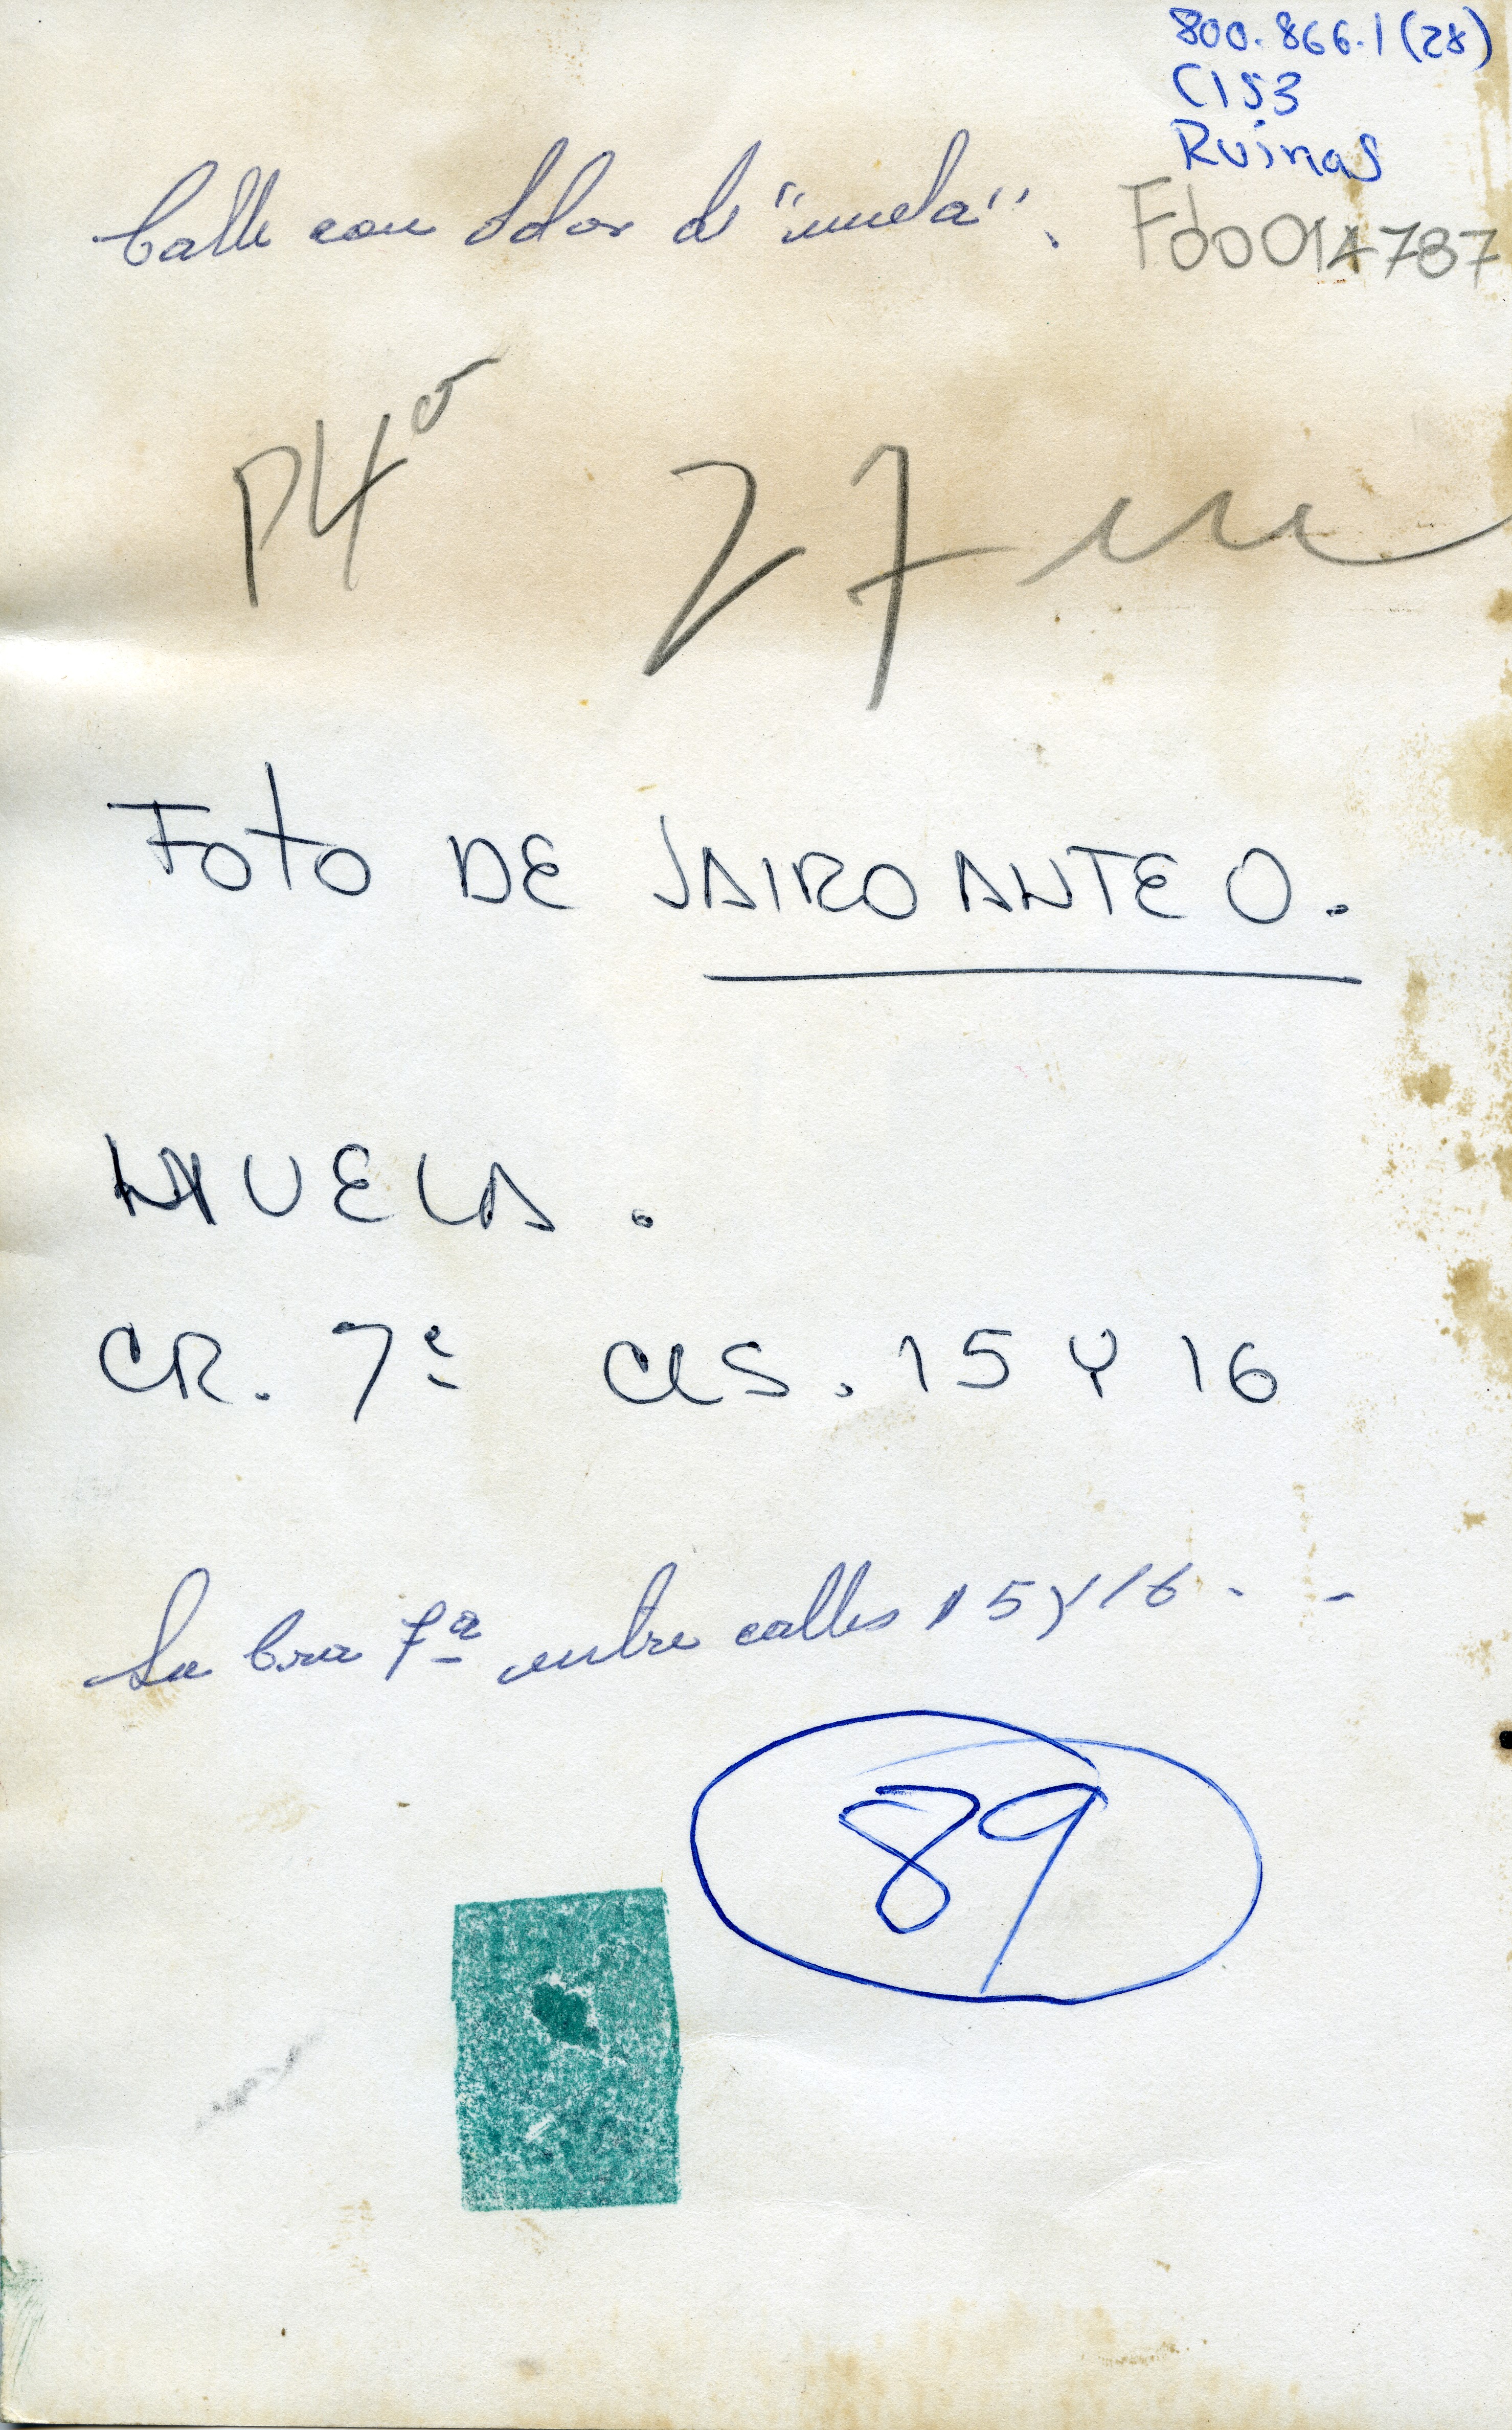 800.866.1 (28)
C153
Ruinas
Calle con dolor de "muela".
Fdo014787
P4º 27 m
FOTO DE JAIRO ANTE O.
MUELA.
CR. 7ª CLS. 15 Y 16
La Cra 7ª entre calles 15 y 16 - -
89